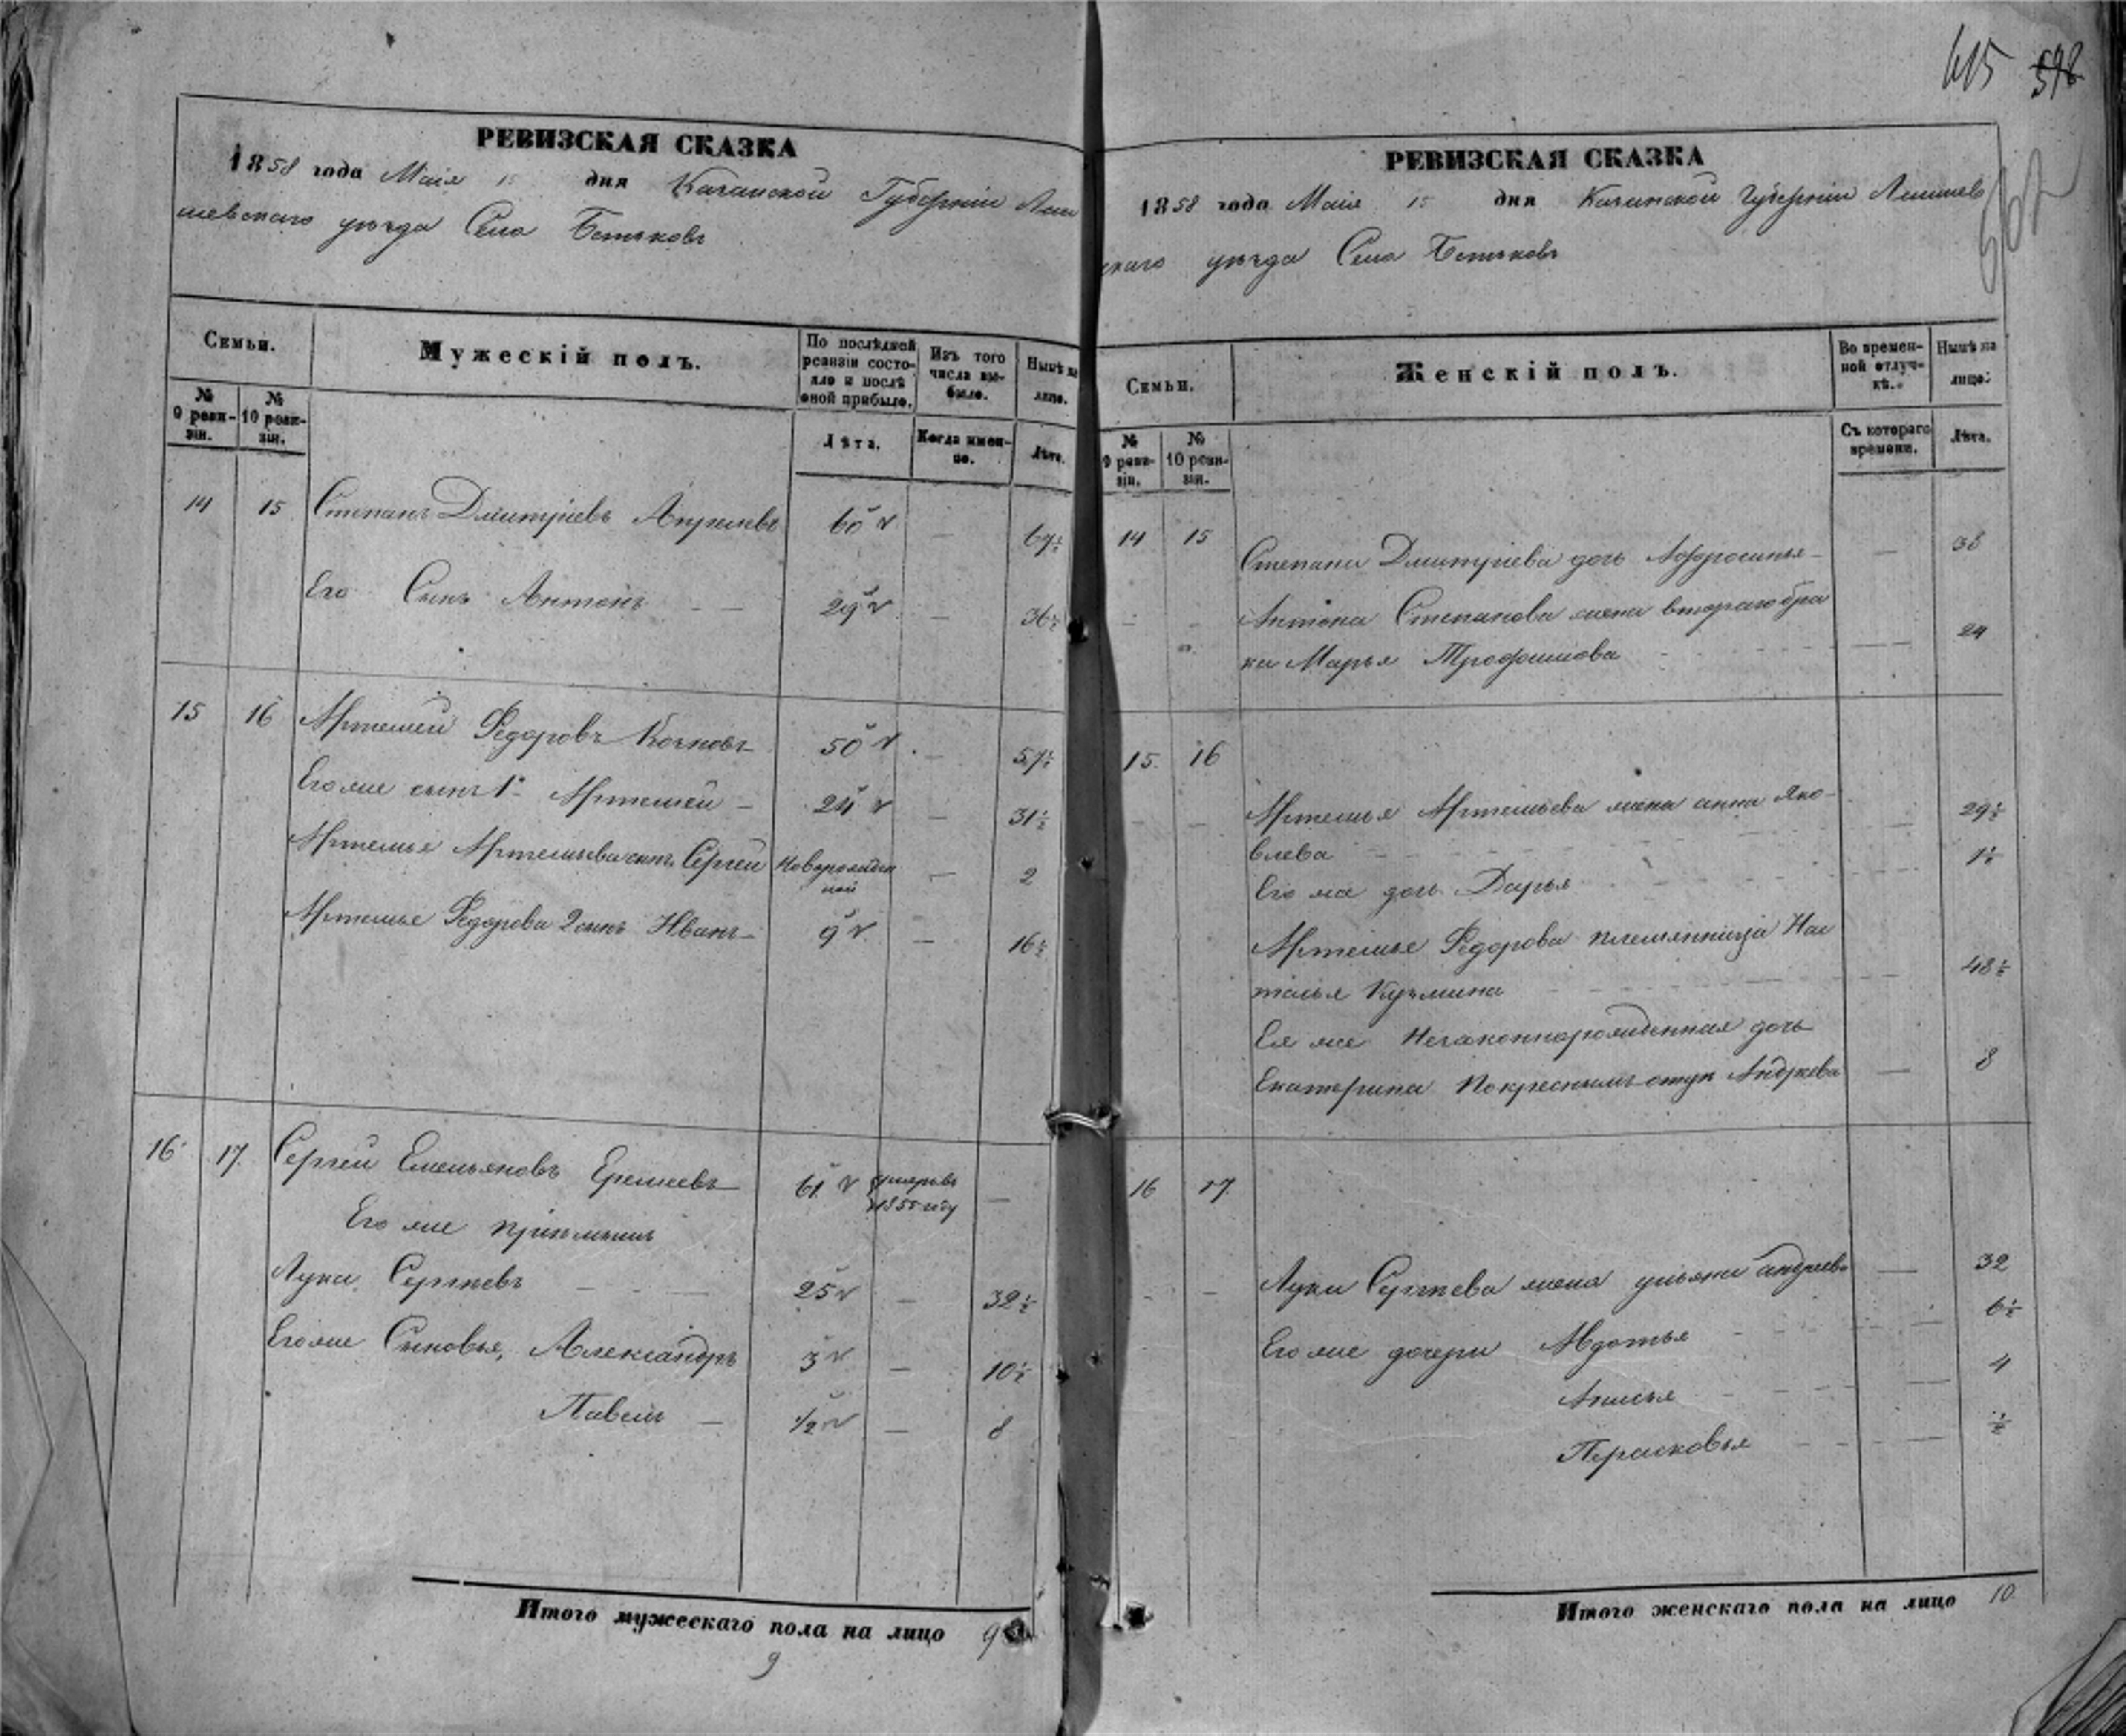 615 598
562
РЕВИЗСКАЯ СКАЗКА
1858 года Маія 15 дня Казанской Губерніи Лаи
шевскаго уѣзда Села Бетьковъ
Семьи.
Мужескій полъ.
По послѣдней ревизіи состояло и послѣ оной прибыло.
Изъ того числа выбыло.
Нынѣ на лицо.
№ 9 ревизіи.
№ 10 ревизіи.
Лѣта.
Когда именно.
Лѣта.
14 15 Степанъ Дмитріевъ 60 — 67½
Его Сынъ Антонъ — — 29 — 36½
15 16 Артемей Федоровъ 50 — 57½
Его же сынъ 1й Артемей — 24 — 31½
Артемья Артемьева сынъ Сергей Новорожден — 2
ной
Артемье Федорова 2 сынъ Иванъ — 9 — 16½
16 17 Сергей Емельяновъ Еремеевъ 61 умеръ въ —
1855 году
Его же пріемышъ
Лука Сергѣевъ — — 25 — 32½
Его же Сыновья, Александръ 3 — 10½
Павелъ — 1/2 — 8
Итого мужескаго пола на лицо 9
9
РЕВИЗСКАЯ СКАЗКА
1858 года Маія 15 дня Казанской Губерніи Лаишев
скаго уѣзда Села Бетьковъ
Семьи.
Женскій полъ.
Во временной отлучкѣ.
Нынѣ на лицо:
№ 9 ревизіи.
№ 10 ревизіи.
Съ котораго времени.
Лѣта.
14 15 Степана Дмитріева дочь Афросинья — — 38
Антона Степанова жена втораго бра
ка Марья Трофимова — 24
15 16
Артемья Артемьева жена анна Яко- 29½
влева
Его же дочь Дарья 1½
Артемье Федорова племянница На
талья Кузмина 48½
Ея же Незаконнорожденная дочь
Екатерина Покресному отцу Андрѣева — 8
16 17
Луки Сергѣева жена ульяна андреева — 32
Его же дочери Авдотья 6½
Анисья 4
Парасковья ½
Итого женскаго пола на лицо 10